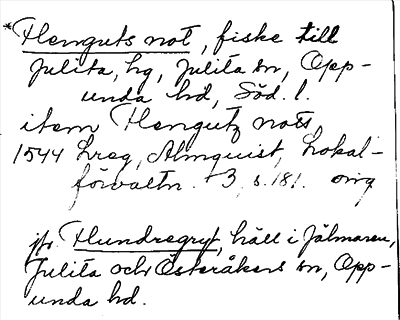 *Henguts not, fiske till
Julita, hg, Julita sn, Opp-
unda hd, Söd. l.
item Hengutz nots
1544 Lreg, Almquist, Lokal-
förvaltn. 3, s. 181. orig
jfr. Hundregryt, häll i Jälmaren,
Julita och Österåkers sn, Opp-
unda hd.